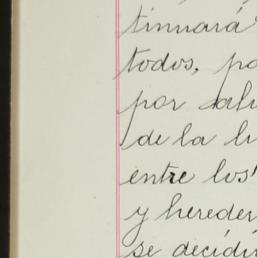 tinuará
todos, po
por salu
de la li
entre los
y hereder
se decidi